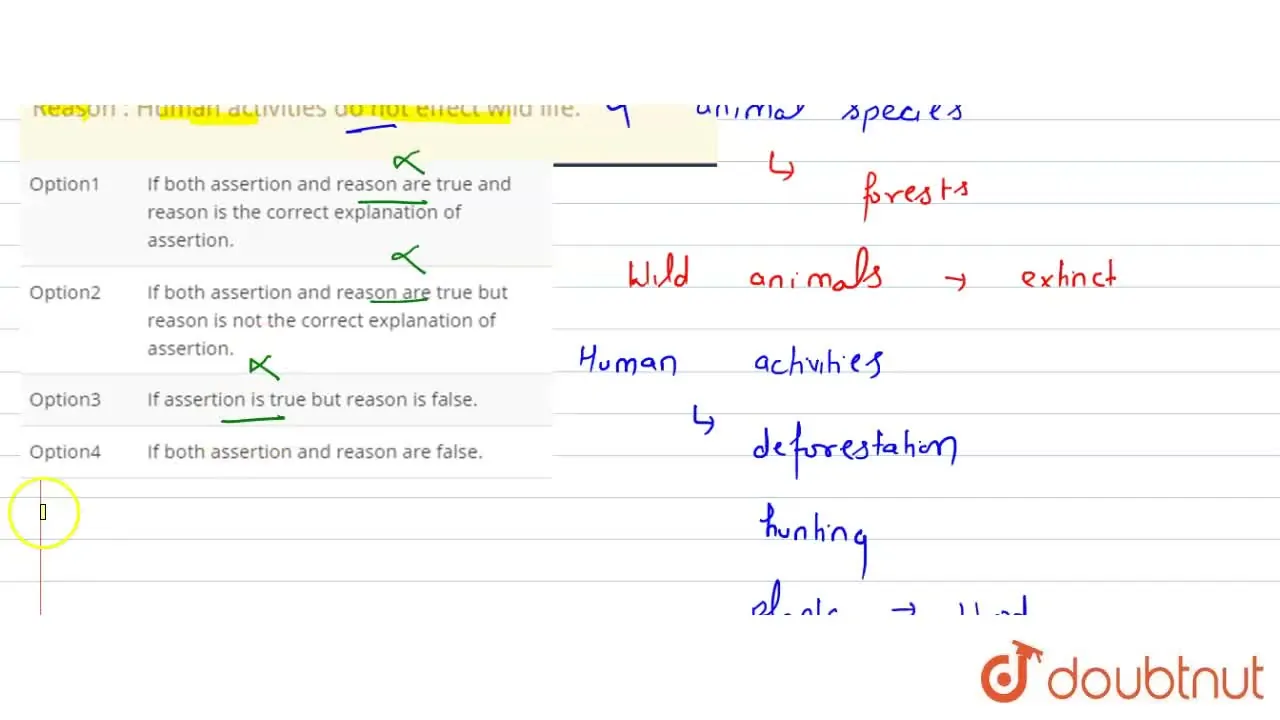 Reason : Human activities do not effect wild life.
animal species
forests
Option1 If both assertion and reason are true and
reason is the correct explanation of
assertion.
Wild animals → extinct
Option2 If both assertion and reason are true but
reason is not the correct explanation of
assertion.
Human activities
Option3 If assertion is true but reason is false.
deforestation
Option4 If both assertion and reason are false.
hunting
doubtnut